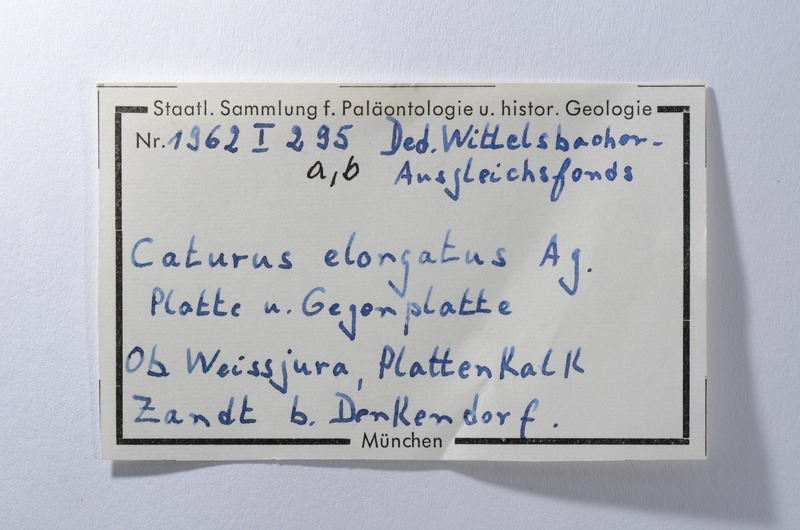 Staatl. Sammlung f. Paläontologie u. histor. Geologie
Nr. 1962 I 295 Ded. Wittelsbacher-
a, b Ausgleichsfonds
Caturus elongatus Ag.
Platte u. Gegenplatte
Ob Weissjura, Plattenkalk
Zandt b. Denkendorf.
München